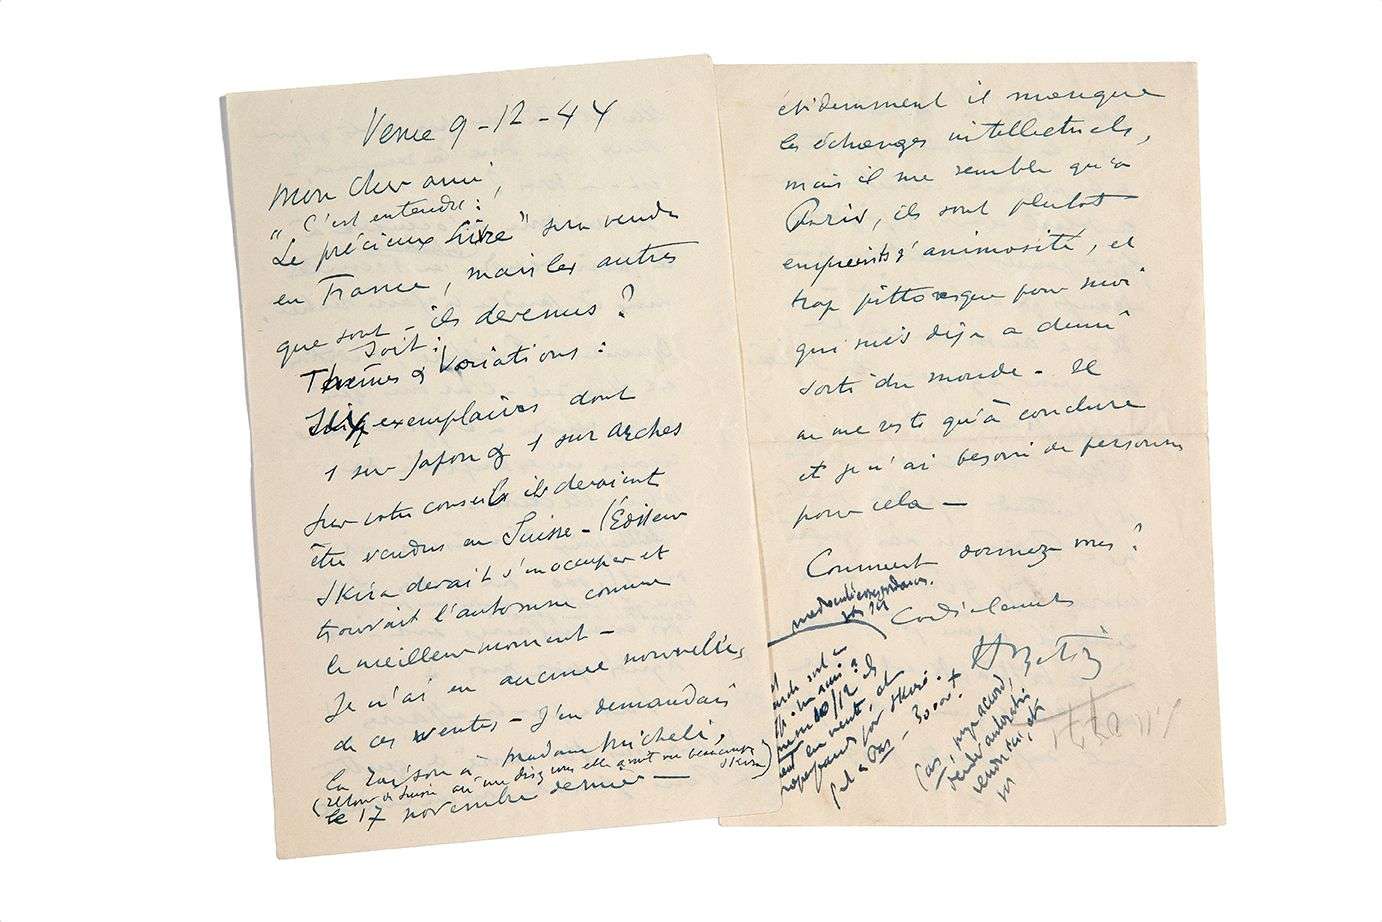 Vence 9-12-44
Mon cher ami,
"C'est entendu :
Le précieux Livre" sera vendu
en France, mais les autres
que sont-ils devenus ?
Soit :
Thèmes & Variations :
exemplaires dont
1 sur Japon & 1 sur arches
Sur votre conseil ils devaient
être vendus en Suisse - (Éditeur
Skira devait s'en occuper et
trouvait l'automne comme
le meilleur moment -
Je n'ai eu aucune nouvelle,
de ces ventes - J'en demandais
la raison à Madame Micheli,
(retour de Suisse où elle avait vu beaucoup Skira)
le 17 novembre dernier -
évidemment il manque
les échanges intellectuels,
mais il me semble qu'à
Paris, ils sont plutôt
empreints d'animosité, et
trop pittoresque pour moi
qui suis déjà à demi
sorti du monde - Il
ne me reste qu'à conclure
et je n'ai besoin de personne
pour cela -
Comment dormez vous ?
Cordialement
H Matisse
10/12
en vente, et
par Skira.
(as, pr accord,
vendre
vendre